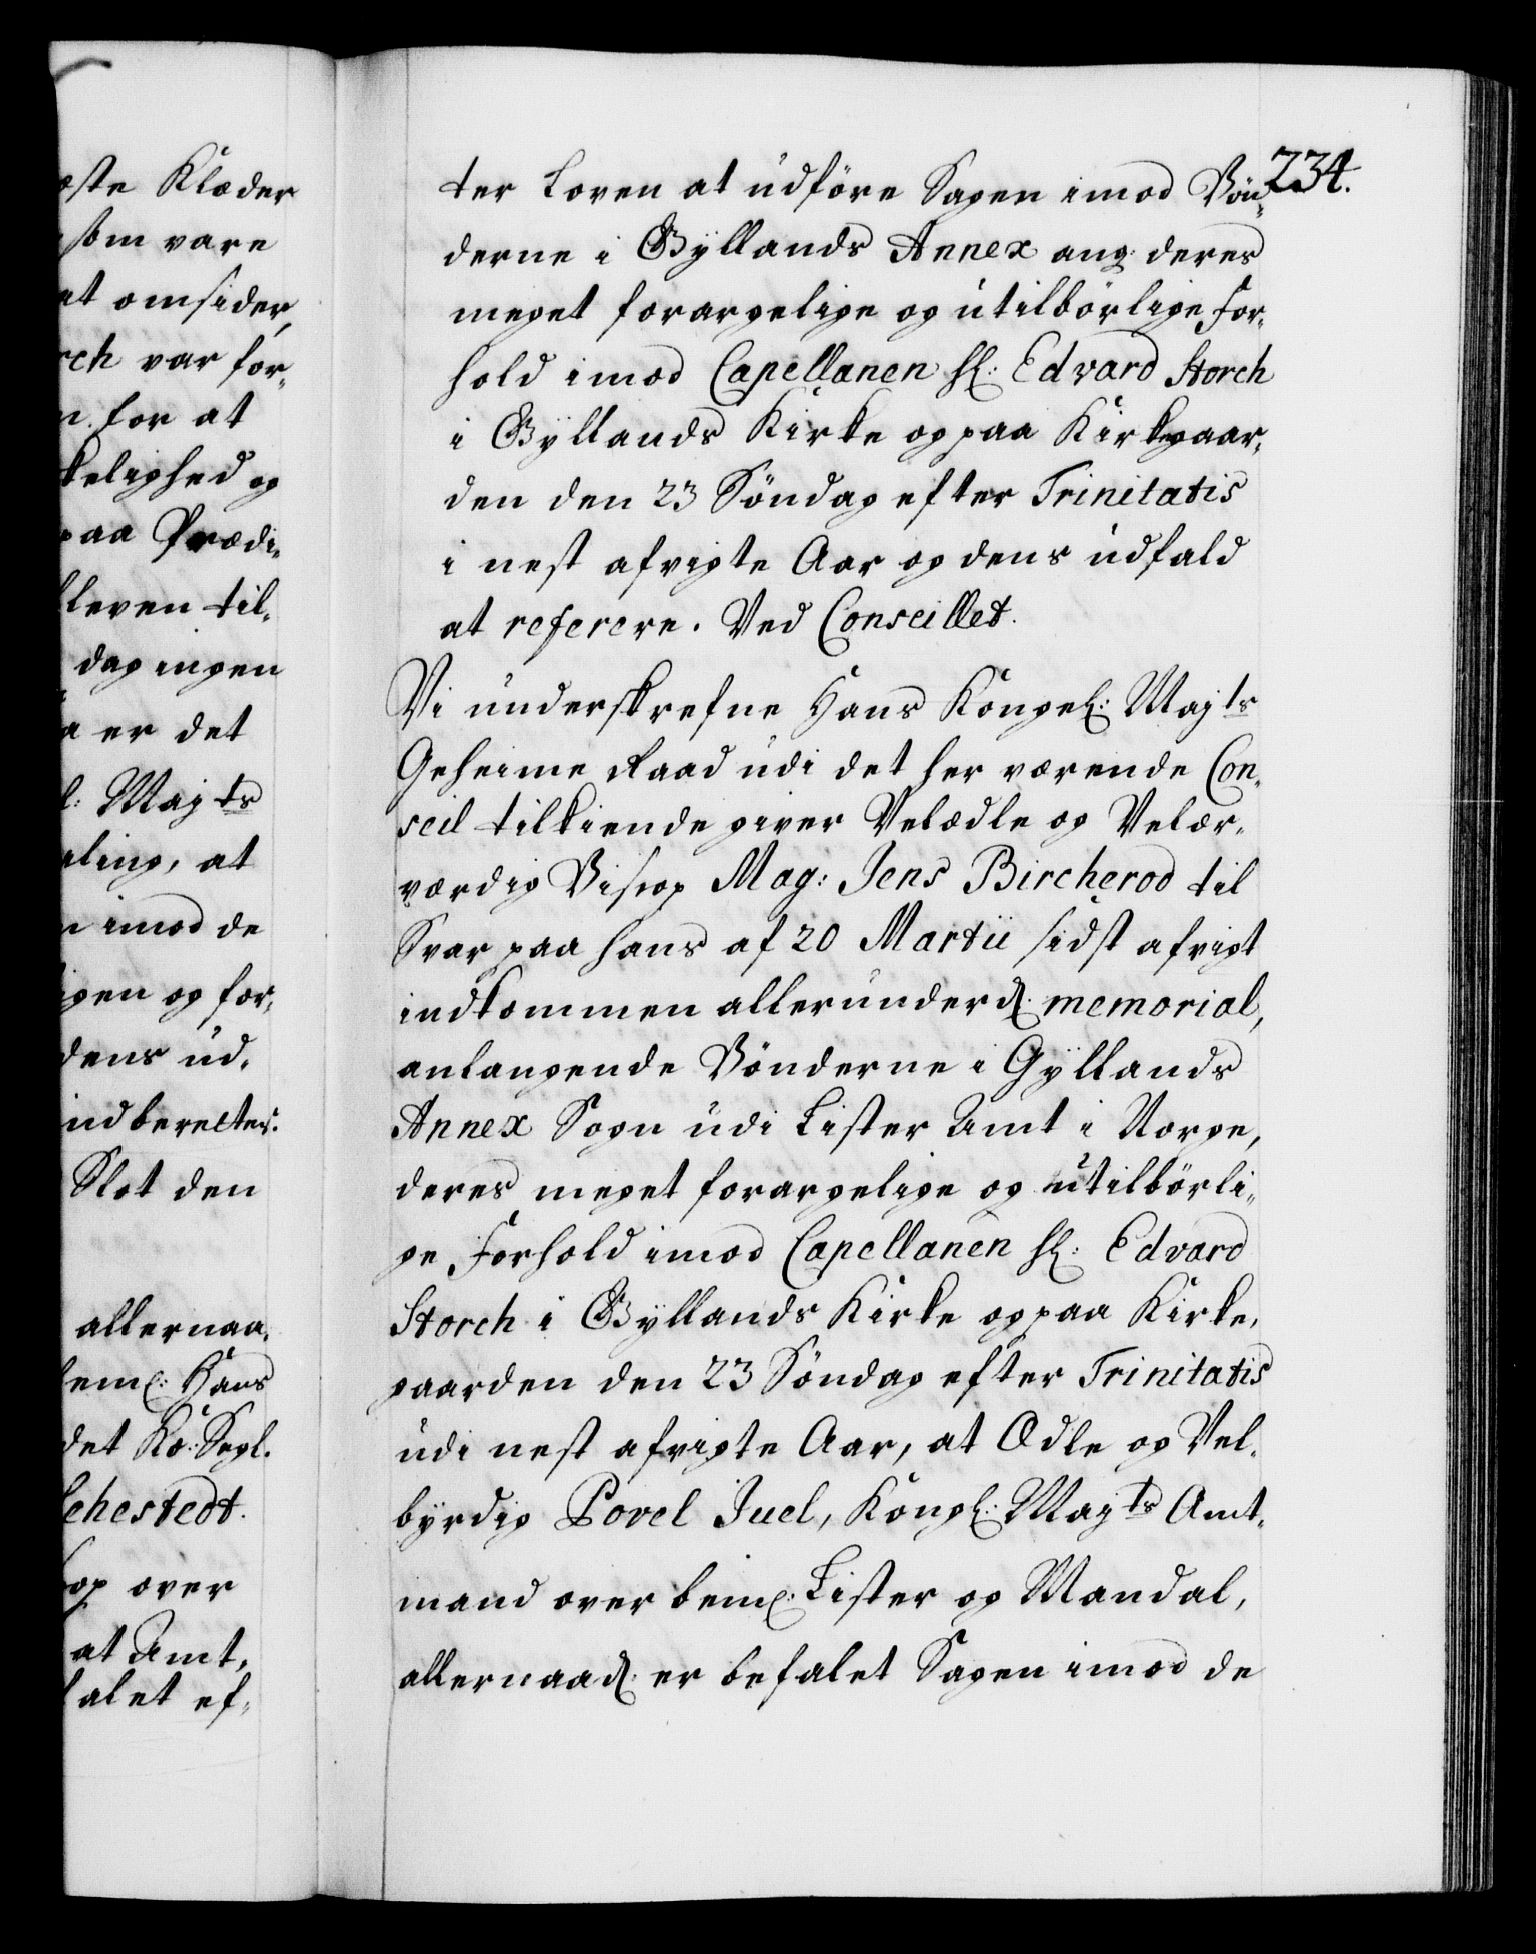 æste Klæder
som vare
at omsider,
rch var for-
n. for at
kelighed og
paa Prædi-
bleven til-
dag ingen
a er det
l: Majts
aling, at
n imod de
igen og for-
dens ud-
indberettes.
Slot den
allernaa-
bemt: Hans
det Ko: Segl.
ehestedt.
op over
at Amt-
falet ef-
234.
ter Loven at udföre Sagen imod Bön-
derne i Gyllands Annex ang: deres
meget forargelige og utilbörlige For-
hold imod Capellanen Hr: Edvard Storch
i Gyllands Kirke og paa Kirkegaar-
den den 23 Söndag efter Trinitatis
i nest afvigte Aar og dens udfald
at referere. Ved Conseillet.
Vi underskrefne Hans Kongel: Majts
Geheime Raad udi det her værende Con-
seil tilkiende giver Velædle og Velær-
værdig Biscop Mag: Jens Bircherod til
Svar paa hans af 20 Martii sidst afvigt
indkommen allerunderd: memorial,
anlangende Bönderne i Gyllands
Annex Sogn udi Lister Amt i Norge,
deres meget forargelige og utilbörli-
ge Forhold imod Capellanen Hr: Edvard
Storch i Gyllands Kirke og paa Kirke-
gaarden den 23 Söndag efter Trinitatis
udi nest afvigte Aar, at Ædle og Vel-
byrdig Povel Juel, Kongl: Majts Amt-
mand over bemt: Lister og Mandal,
allernaad: er befalet Sagen imod de